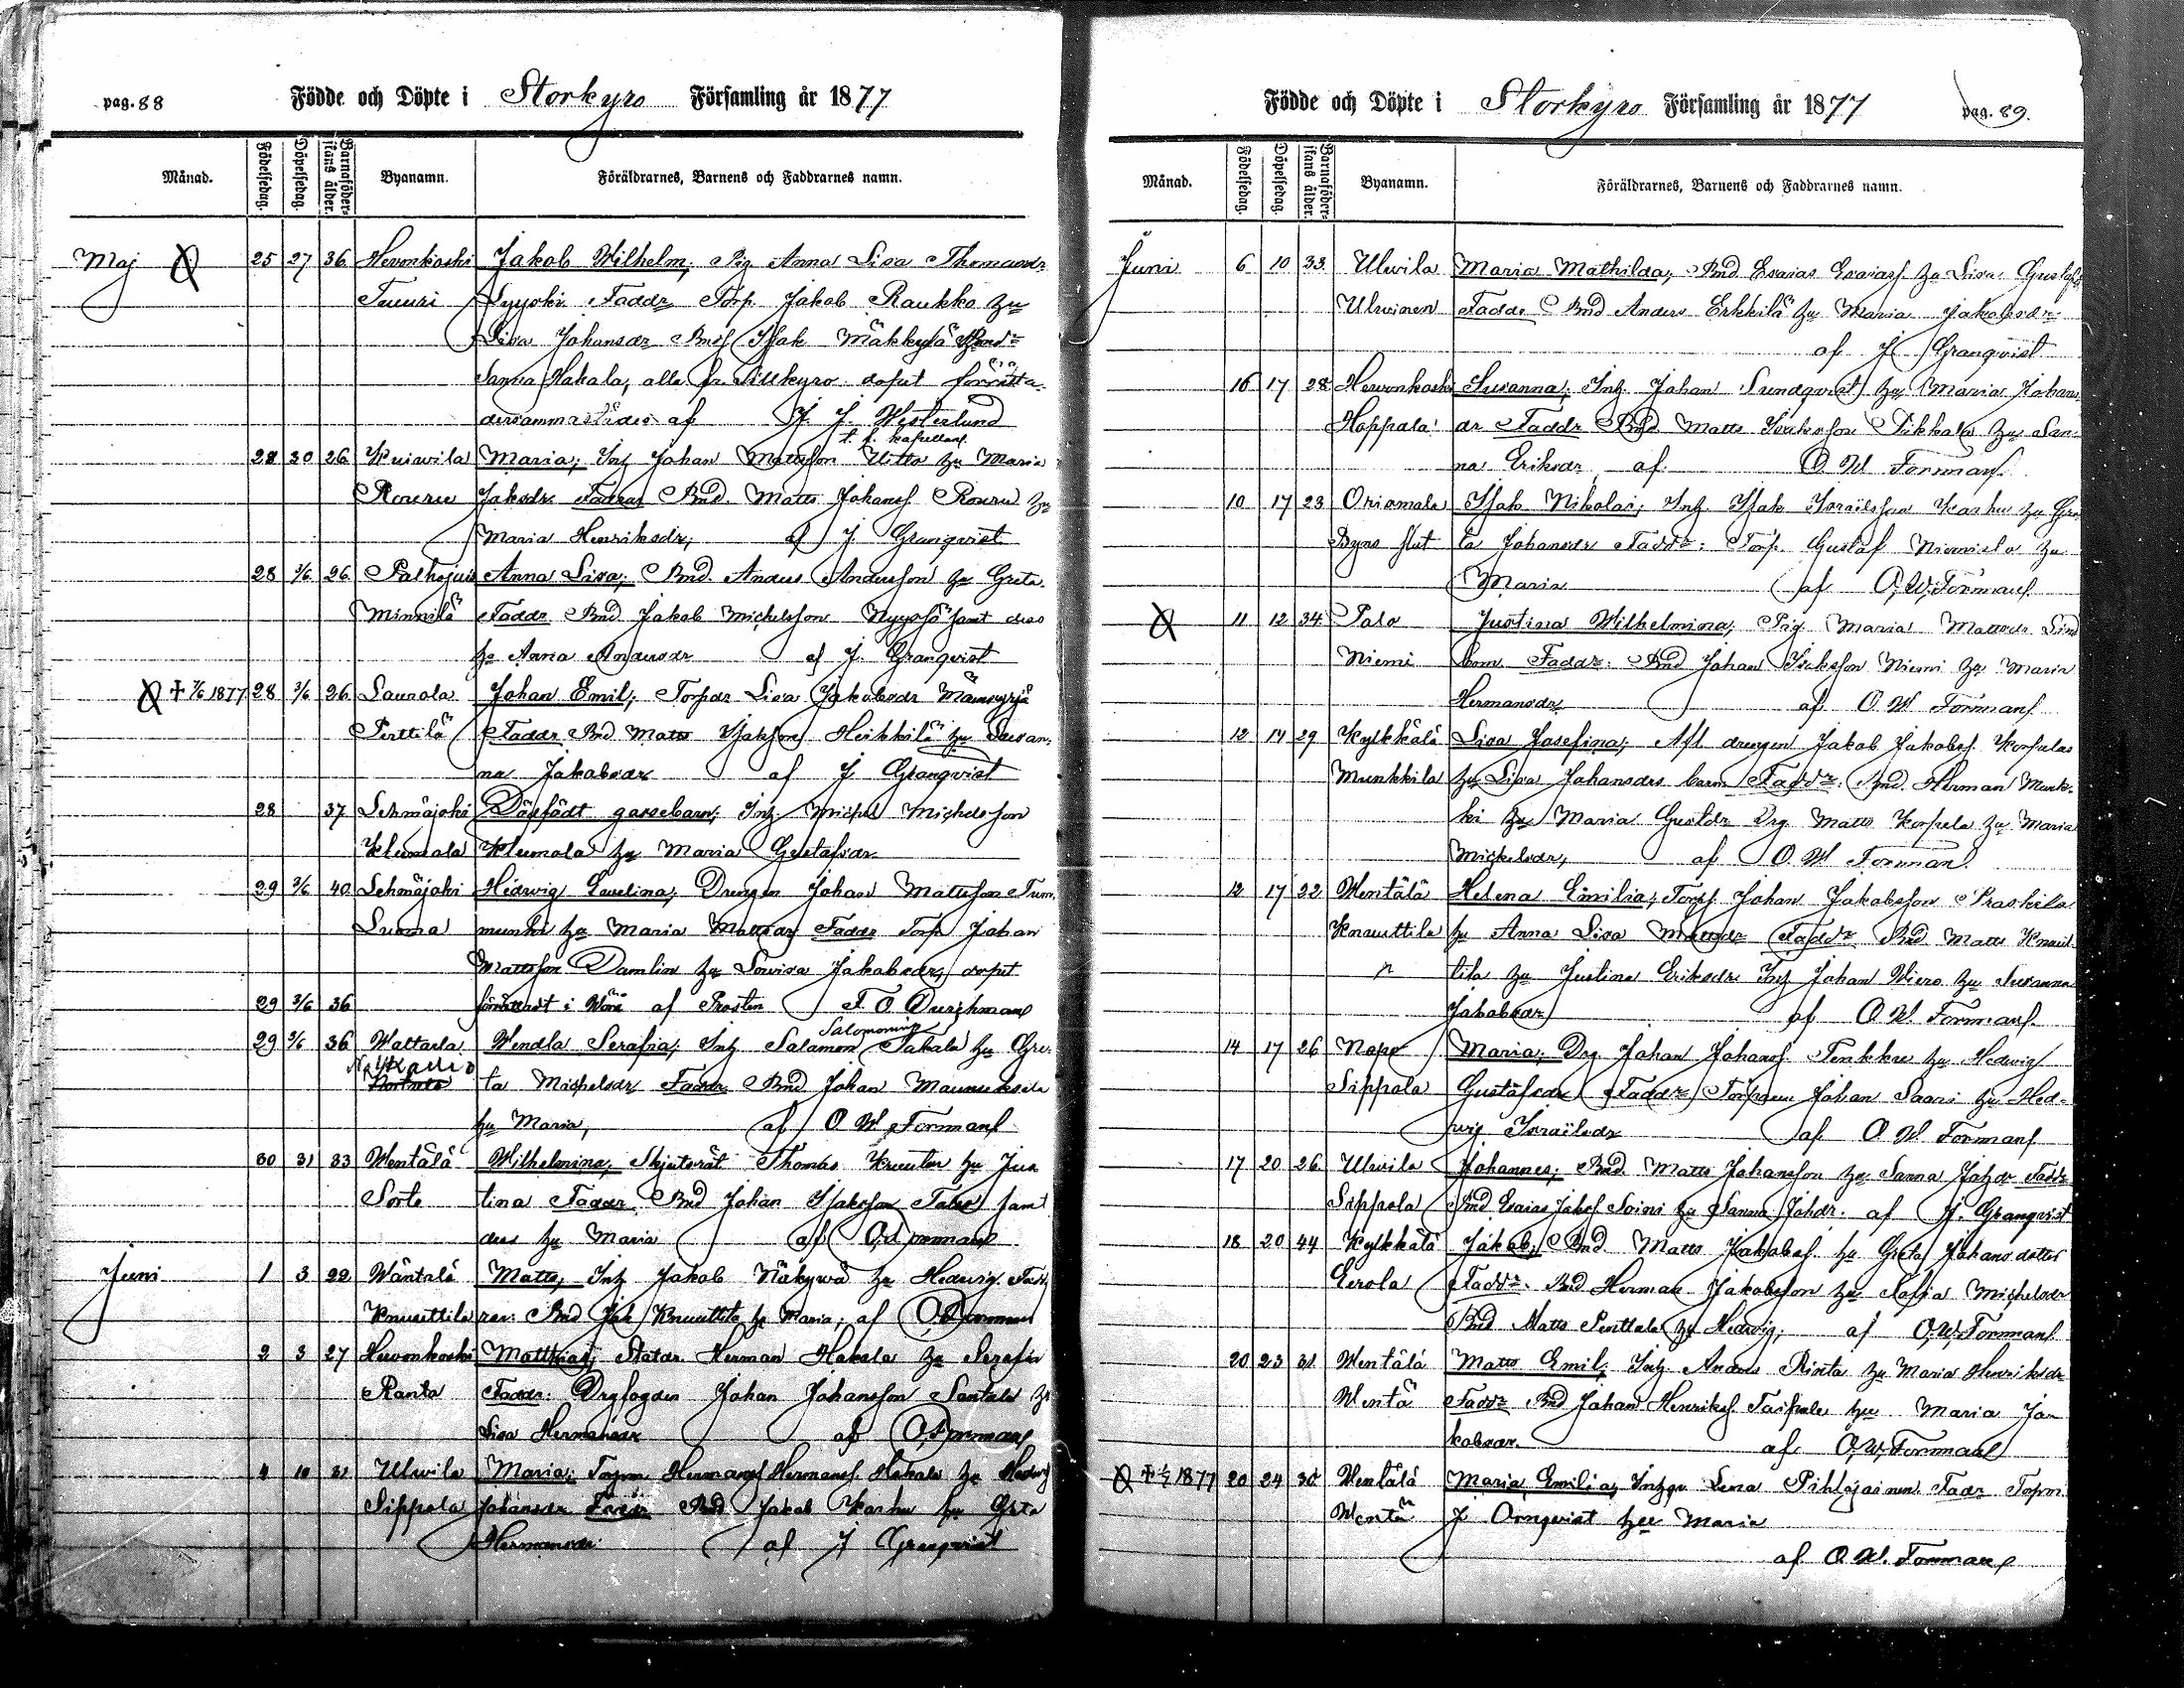 pag. 88 Födde och Döpte i Storkyro Församling år 1877
Månad. Födelsedag. Döpelsedag. Barnaföder-skans ålder. Byanamn. Föräldrarnes, Barnens och Faddrarnes namn.
Maj 25 27 36 Hevonkoski Jakob Wilhelm; Pig Anna Lisa Thomasdr
Tuuri Faddr Torp. Jakob Raukko hu
Lisa Johansdr Isak Mäkkylä
Sanna Hakala, alla fr. Lillkyro dopet förrätta-
dersammastädes af J. J. Westerlund
t. f. kapellan
28 30 26 Kuivila Maria; Inh Johan Mattsson hu Maria
Rouru Jaksdr Faddrar Bnd. Matts Johanss Rouru hu
Maria Henriksdr, af J. Granqvist
28 3/6 26 Palhojais Anna Lisa; Bnd. Anders Andersson hu Greta
Minnilä Faddr Bnd Jakob Michelsson samt dess
hu Anna Andersdr af J. Granqvist
† 7/6 1877 28 3/6 26 Laurola Johan Emil; Torpdr Lisa Jakobsdr
Perttilä Faddr Bnd Matts Isaksson Heikkilä hu Susan-
na Jakobsdr af J Granqvist
28 37 Lehmäjoki Dödfödt gossebarn; Inh. Michel Michelsson
Klemola Klemola hu Maria Gustafsdr
29 3/6 40 Lehmäjoki Hedwig Evelina; Drengen Johan Mattsson Tum-
Luoma munki hu Maria Mattsdr Faddr Torp Johan
Mattsson Damlin hu Lovisa Jakobsdr; dopet
29 3/6 36 förrättadt i Wörå af Prosten F. O. Durchman
Salomonin
29 3/6 36 Waltarla Wendla Serafia; Inh Salamon Sakala hu Gre-
ta Michelsdr Faddr Bnd Johan Maunuksela
hu Maria, af O W Forsman
30 31 33 Wentälä Wilhelmina; Skjutsrät Thomas hu Jus
Sorte tina Faddr Bnd Johan Isaksson samt
dess hu Maria af O. Forsman
Juni 1 3 22 Wäntälä Matts, Inh Jakob Näkywä hu Hedvig. Fadd
Knuuttila rar: Bnd Jak Knuuttila hu Maria; af O. Forsman
2 3 27 Hevonkoski Matthias; Statdr Herman Hakala hu Serafia
Ranta Faddr: Drgfogden Johan Johansson Santala hu
Lisa Hermansdr af O. Forsman
4 10 31 Ulwila Maria; Torpm Hermans Hermanss. Hakala hu Hedvig
Sippola Johansdr Faddr Bnd Jakob Karhu hu Greta
Hermansdr. af J Granqvist
Födde och Döpte i Storkyro Församling år 1877 pag. 89.
Månad. Födelsedag. Döpelsedag. Barnaföder-skans ålder. Byanamn. Föräldrarnes, Barnens och Faddrarnes namn.
Juni 6 10 33 Ulwila Maria Mathilda; Bnd Esaias Esaiass hu Lisa Gustafsd
Ulwinen Faddr Bnd Anders Erkkilä hu Maria Jakobsdr
af J Granqvist
16 17 28 Hevonkoski Susanna; Inh Johan Sundqvist hu Maria Johans
Hoppala dr Faddr Bnd Matts Isaksson Pikkala hu San-
na Eriksdr af O W Forsman
10 17 23 Orismala Isak Nikolai; Inh Isak Israelsson Karhu hu Gre
Byns slut ta Johansdr Faddr: Torp. Gustaf Niemistö hu
Maria af O. W. Forsman
11 12 34 Palo Justina Wilhelmina; Pig Maria Mattsdr Lind
Niemi bom. Faddr: Bnd Johan Isaksson Niemi hu Maria
Hermansdr af O. W Forsman
12 14 29 Kylkkälä Lisa Josefina; Afl drengen Jakob Jakobss. Korpelas
Munkkila hu Lisa Johansdrs barn Faddr: Bnd. Herman Munk-
ki hu Maria Gustdr Drg Matts Korpela hu Maria
Michelsdr, af O. W. Forsman
12 17 22 Wentälä Helena Emilia; Torp Johan Jakobsson Praskila
Knuuttila hu Anna Lisa Mattsdr Faddr Bnd Matts Knuut-
tila hu Justina Eriksdr Inh Johan Wiero hu Susanna
Jakobsdr af O W. Forsman
14 17 26 Napo Maria; Drg Johan Johanss Tenkku hu Hedvig
Sippola Gustafsdr Faddr Torparen Johan Saari hu Hed-
wig Israelsdr af O W. Forsman
17 20 26 Ulwila Johannes; Bnd Matts Johansson hu Sanna Johdr Faddr
Sippola Bnd Esaias Jakss Soini hu Sanna Johdr. af J. Granqvist
18 20 44 Kylkkälä Jakob; Bnd Matts Jakobss hu Greta Johans dotter
Eerola Faddr. Bnd Herman Jakobsson hu Sofia Michelsdr
Bnd Matts Penttala hu Hedvig; af O. W. Forsman
20 23 31 Wentälä Matts Emil; Inh. Anders Rinta hu Maria Henriksdr
Wentä Faddr Bnd Johan Henrikss Taipale hu Maria Ja-
kobsdr. af O. W. Forsman
1877 20 24 30 Wentälä Maria Emilia; Inhqv Lena Pihlajainen Fadr Torpr.
Wentä J Ornqvist hu Maria
af O. W. Forsman